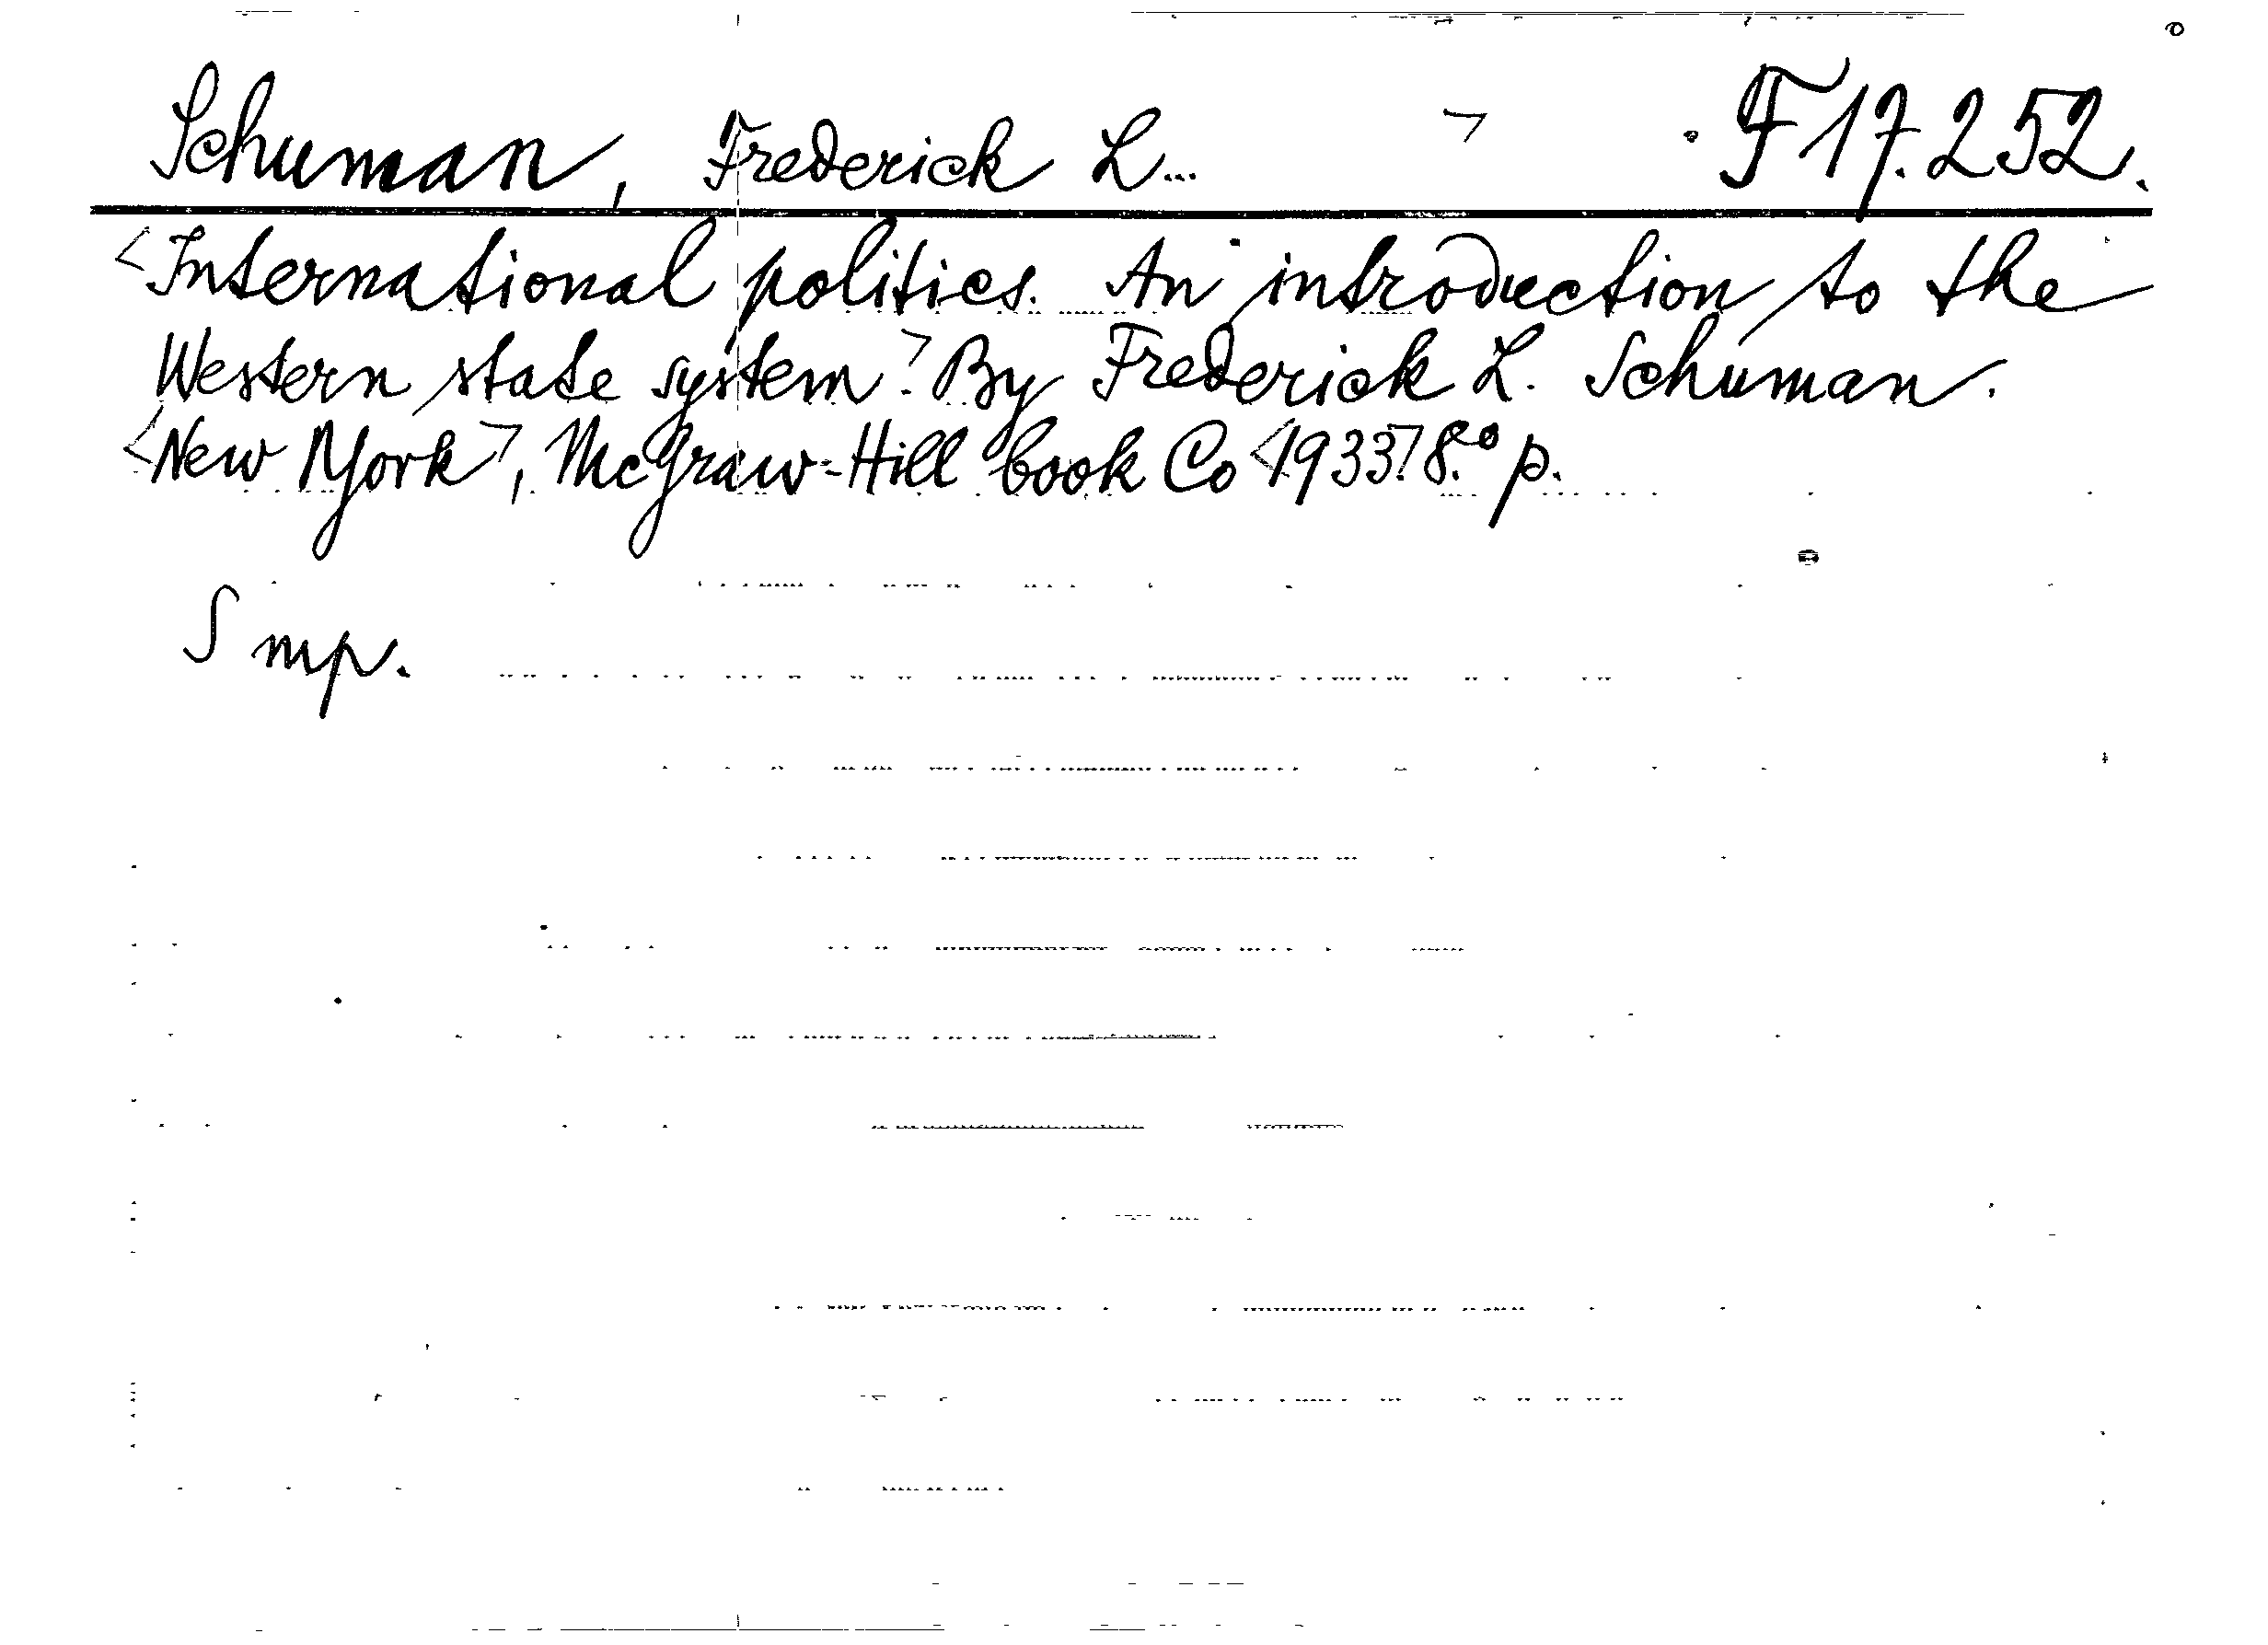 Schuman, Frederick L... F 17.252.
<International politics. An introduction to the
Western state system.> By Frederick L. Schuman.
<New York>, McGraw-Hill book Co <1933.> 8.º p.
S mp.